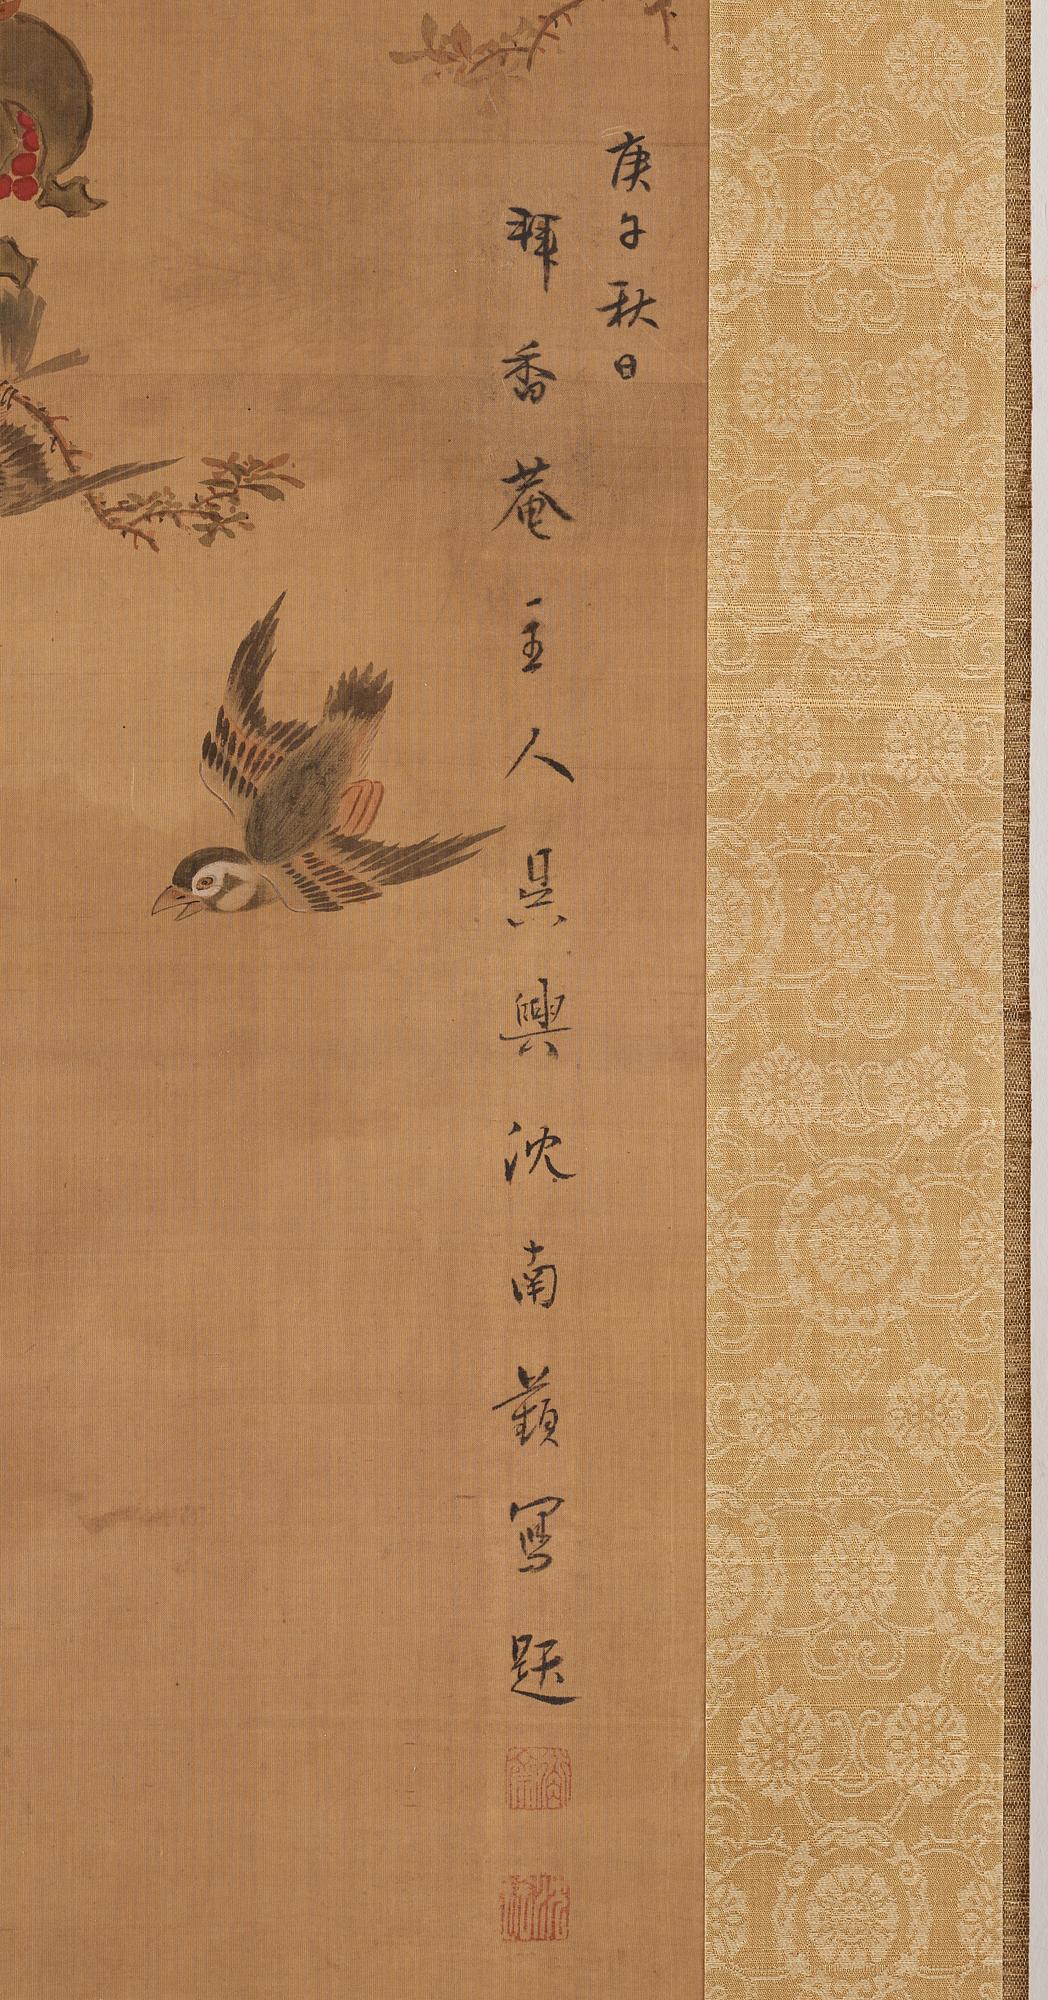 庚午秋日
拜香菴主人吳興沈南蘋寫題